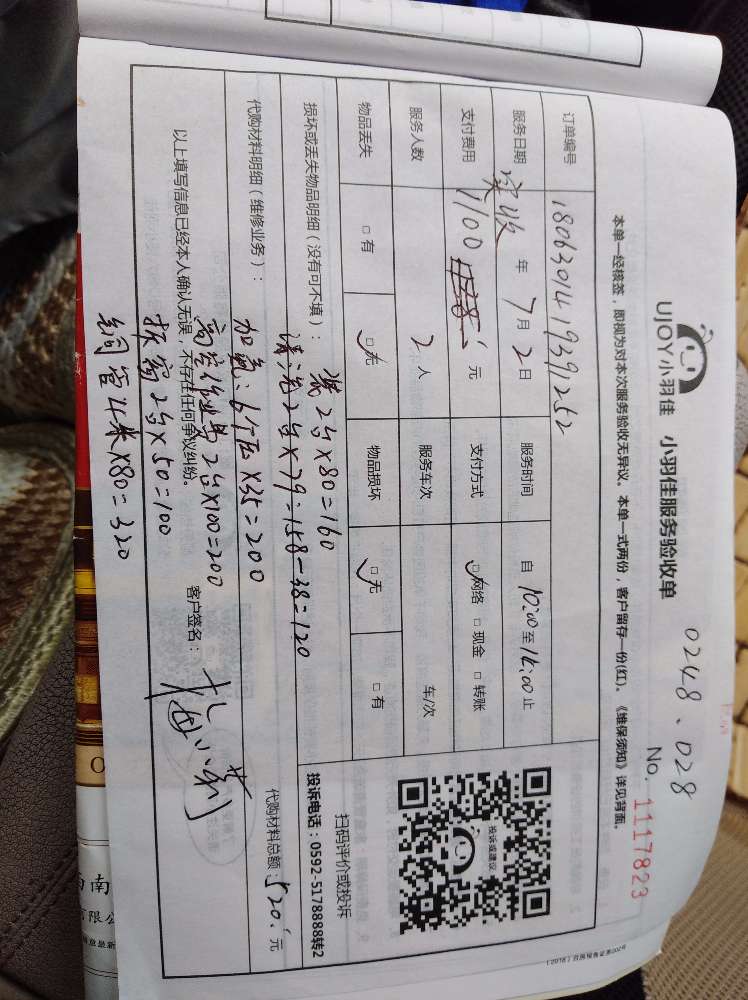 0248、028
UJOY小羽佳 小羽佳服务验收单
No. 1117823
本单一经核签，即视为对本次服务验收无异议。本单一式两份，客户留存一份(红)。《维保须知》详见背面。
订单编号 1806301419391252
服务日期 年 7月 2日 服务时间 自 10:00 至 14:00 止
支付费用 实收 1100 元 支付方式 ☑网络 □现金 □转账
服务人数 2人 服务车次 车/次
物品丢失 □有 ☑无 物品损坏 ☑无 □有
投诉或建议
扫码评价或投诉
投诉电话：0592-5178888转2
损坏或丢失物品明细（没有可不填）：
装2台×80=160
清洗2台×79=158-38=120
代购材料明细（维修业务）：
加氟：6个压×35=200
代购材料总额：520元
高空作业 2台×100=200
以上填写信息已经本人确认无误，不存在任何争议纠纷。
客户签名：
拆窗2台×50=100
铜管4米×80=320